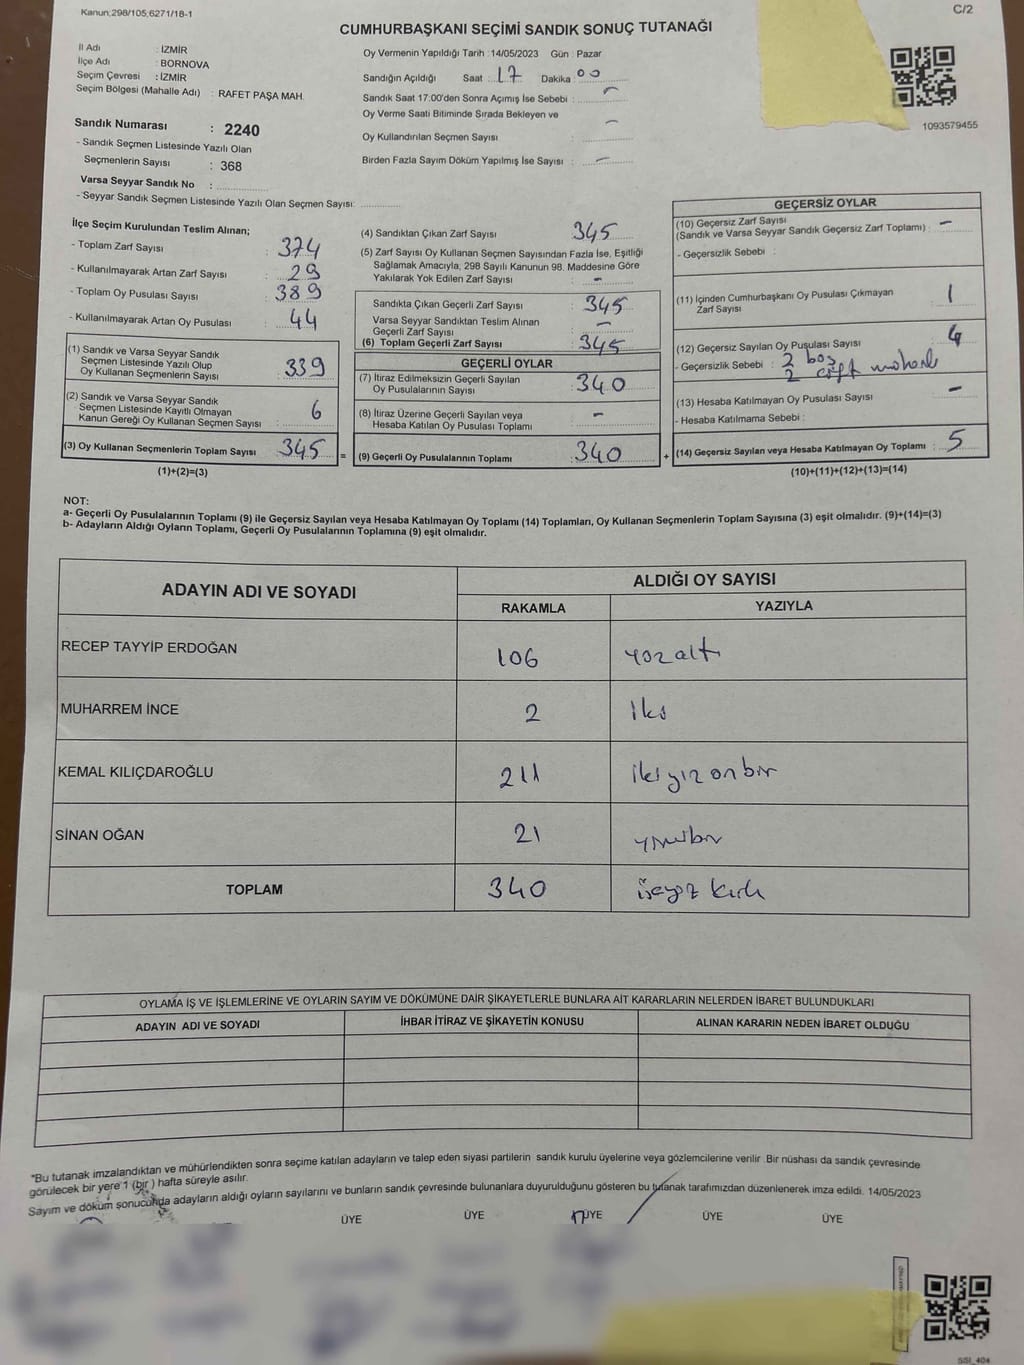 Kanun;298/105;6271/18-1
C/2
CUMHURBAŞKANI SEÇİMİ SANDIK SONUÇ TUTANAĞI
İl Adı : İZMİR
İlçe Adı : BORNOVA
Seçim Çevresi : İZMİR
Seçim Bölgesi (Mahalle Adı) : RAFET PAŞA MAH.
Oy Vermenin Yapıldığı Tarih :14/05/2023 Gün : Pazar
Sandığın Açıldığı Saat : 17 Dakika : 00
Sandık Saat 17:00'den Sonra Açımış İse Sebebi : –
Oy Verme Saati Bitiminde Sırada Bekleyen ve
Oy Kullandırılan Seçmen Sayısı : –
Birden Fazla Sayım Döküm Yapılmış İse Sayısı : –
1093579455
Sandık Numarası : 2240
- Sandık Seçmen Listesinde Yazılı Olan
Seçmenlerin Sayısı : 368
Varsa Seyyar Sandık No :
- Seyyar Sandık Seçmen Listesinde Yazılı Olan Seçmen Sayısı:
İlçe Seçim Kurulundan Teslim Alınan;
- Toplam Zarf Sayısı : 374
- Kullanılmayarak Artan Zarf Sayısı : 29
- Toplam Oy Pusulası Sayısı : 389
- Kullanılmayarak Artan Oy Pusulası : 44
(1) Sandık ve Varsa Seyyar Sandık
Seçmen Listesinde Yazılı Olup
Oy Kullanan Seçmenlerin Sayısı : 339
(2) Sandık ve Varsa Seyyar Sandık
Seçmen Listesinde Kayıtlı Olmayan
Kanun Gereği Oy Kullanan Seçmen Sayısı : 6
(3) Oy Kullanan Seçmenlerin Toplam Sayısı : 345 =
(1)+(2)=(3)
(4) Sandıktan Çıkan Zarf Sayısı : 345
(5) Zarf Sayısı Oy Kullanan Seçmen Sayısından Fazla İse, Eşitliği
Sağlamak Amacıyla, 298 Sayılı Kanunun 98. Maddesine Göre
Yakılarak Yok Edilen Zarf Sayısı : –
Sandıkta Çıkan Geçerli Zarf Sayısı : 345
Varsa Seyyar Sandıktan Teslim Alınan
Geçerli Zarf Sayısı : –
(6) Toplam Geçerli Zarf Sayısı : 345
GEÇERLİ OYLAR
(7) İtiraz Edilmeksizin Geçerli Sayılan
Oy Pusulalarının Sayısı : 340
(8) İtiraz Üzerine Geçerli Sayılan veya
Hesaba Katılan Oy Pusulası Toplamı : –
(9) Geçerli Oy Pusulalarının Toplamı : 340 +
GEÇERSİZ OYLAR
(10) Geçersiz Zarf Sayısı
(Sandık ve Varsa Seyyar Sandık Geçersiz Zarf Toplamı) : –
- Geçersizlik Sebebi :
(11) İçinden Cumhurbaşkanı Oy Pusulası Çıkmayan
Zarf Sayısı : 1
(12) Geçersiz Sayılan Oy Pusulası Sayısı : 4
- Geçersizlik Sebebi : 2 boş
2 çift
(13) Hesaba Katılmayan Oy Pusulası Sayısı : –
- Hesaba Katılmama Sebebi :
(14) Geçersiz Sayılan veya Hesaba Katılmayan Oy Toplamı : 5
(10)+(11)+(12)+(13)=(14)
NOT:
a- Geçerli Oy Pusulalarının Toplamı (9) ile Geçersiz Sayılan veya Hesaba Katılmayan Oy Toplamı (14) Toplamları, Oy Kullanan Seçmenlerin Toplam Sayısına (3) eşit olmalıdır. (9)+(14)=(3)
b- Adayların Aldığı Oyların Toplamı, Geçerli Oy Pusulalarının Toplamına (9) eşit olmalıdır.
ADAYIN ADI VE SOYADI ALDIĞI OY SAYISI
RAKAMLA YAZIYLA
RECEP TAYYİP ERDOĞAN 106 yüz altı
MUHARREM İNCE 2 iki
KEMAL KILIÇDAROĞLU 211 iki yüz on bir
SİNAN OĞAN 21 yirmi bir
TOPLAM 340 üçyüz kırk
OYLAMA İŞ VE İŞLEMLERİNE VE OYLARIN SAYIM VE DÖKÜMÜNE DAİR ŞİKAYETLERLE BUNLARA AİT KARARLARIN NELERDEN İBARET BULUNDUKLARI
ADAYIN ADI VE SOYADI İHBAR İTİRAZ VE ŞİKAYETİN KONUSU ALINAN KARARIN NEDEN İBARET OLDUĞU
"Bu tutanak imzalandıktan ve mühürlendikten sonra seçime katılan adayların ve talep eden siyasi partilerin sandık kurulu üyelerine veya gözlemcilerine verilir. Bir nüshası da sandık çevresinde
görülecek bir yere 1 (bir ) hafta süreyle asılır.
Sayım ve döküm sonucunda adayların aldığı oyların sayılarını ve bunların sandık çevresinde bulunanlara duyurulduğunu gösteren bu tutanak tarafımızdan düzenlenerek imza edildi. 14/05/2023
ÜYE ÜYE ÜYE ÜYE ÜYE
SSI_404